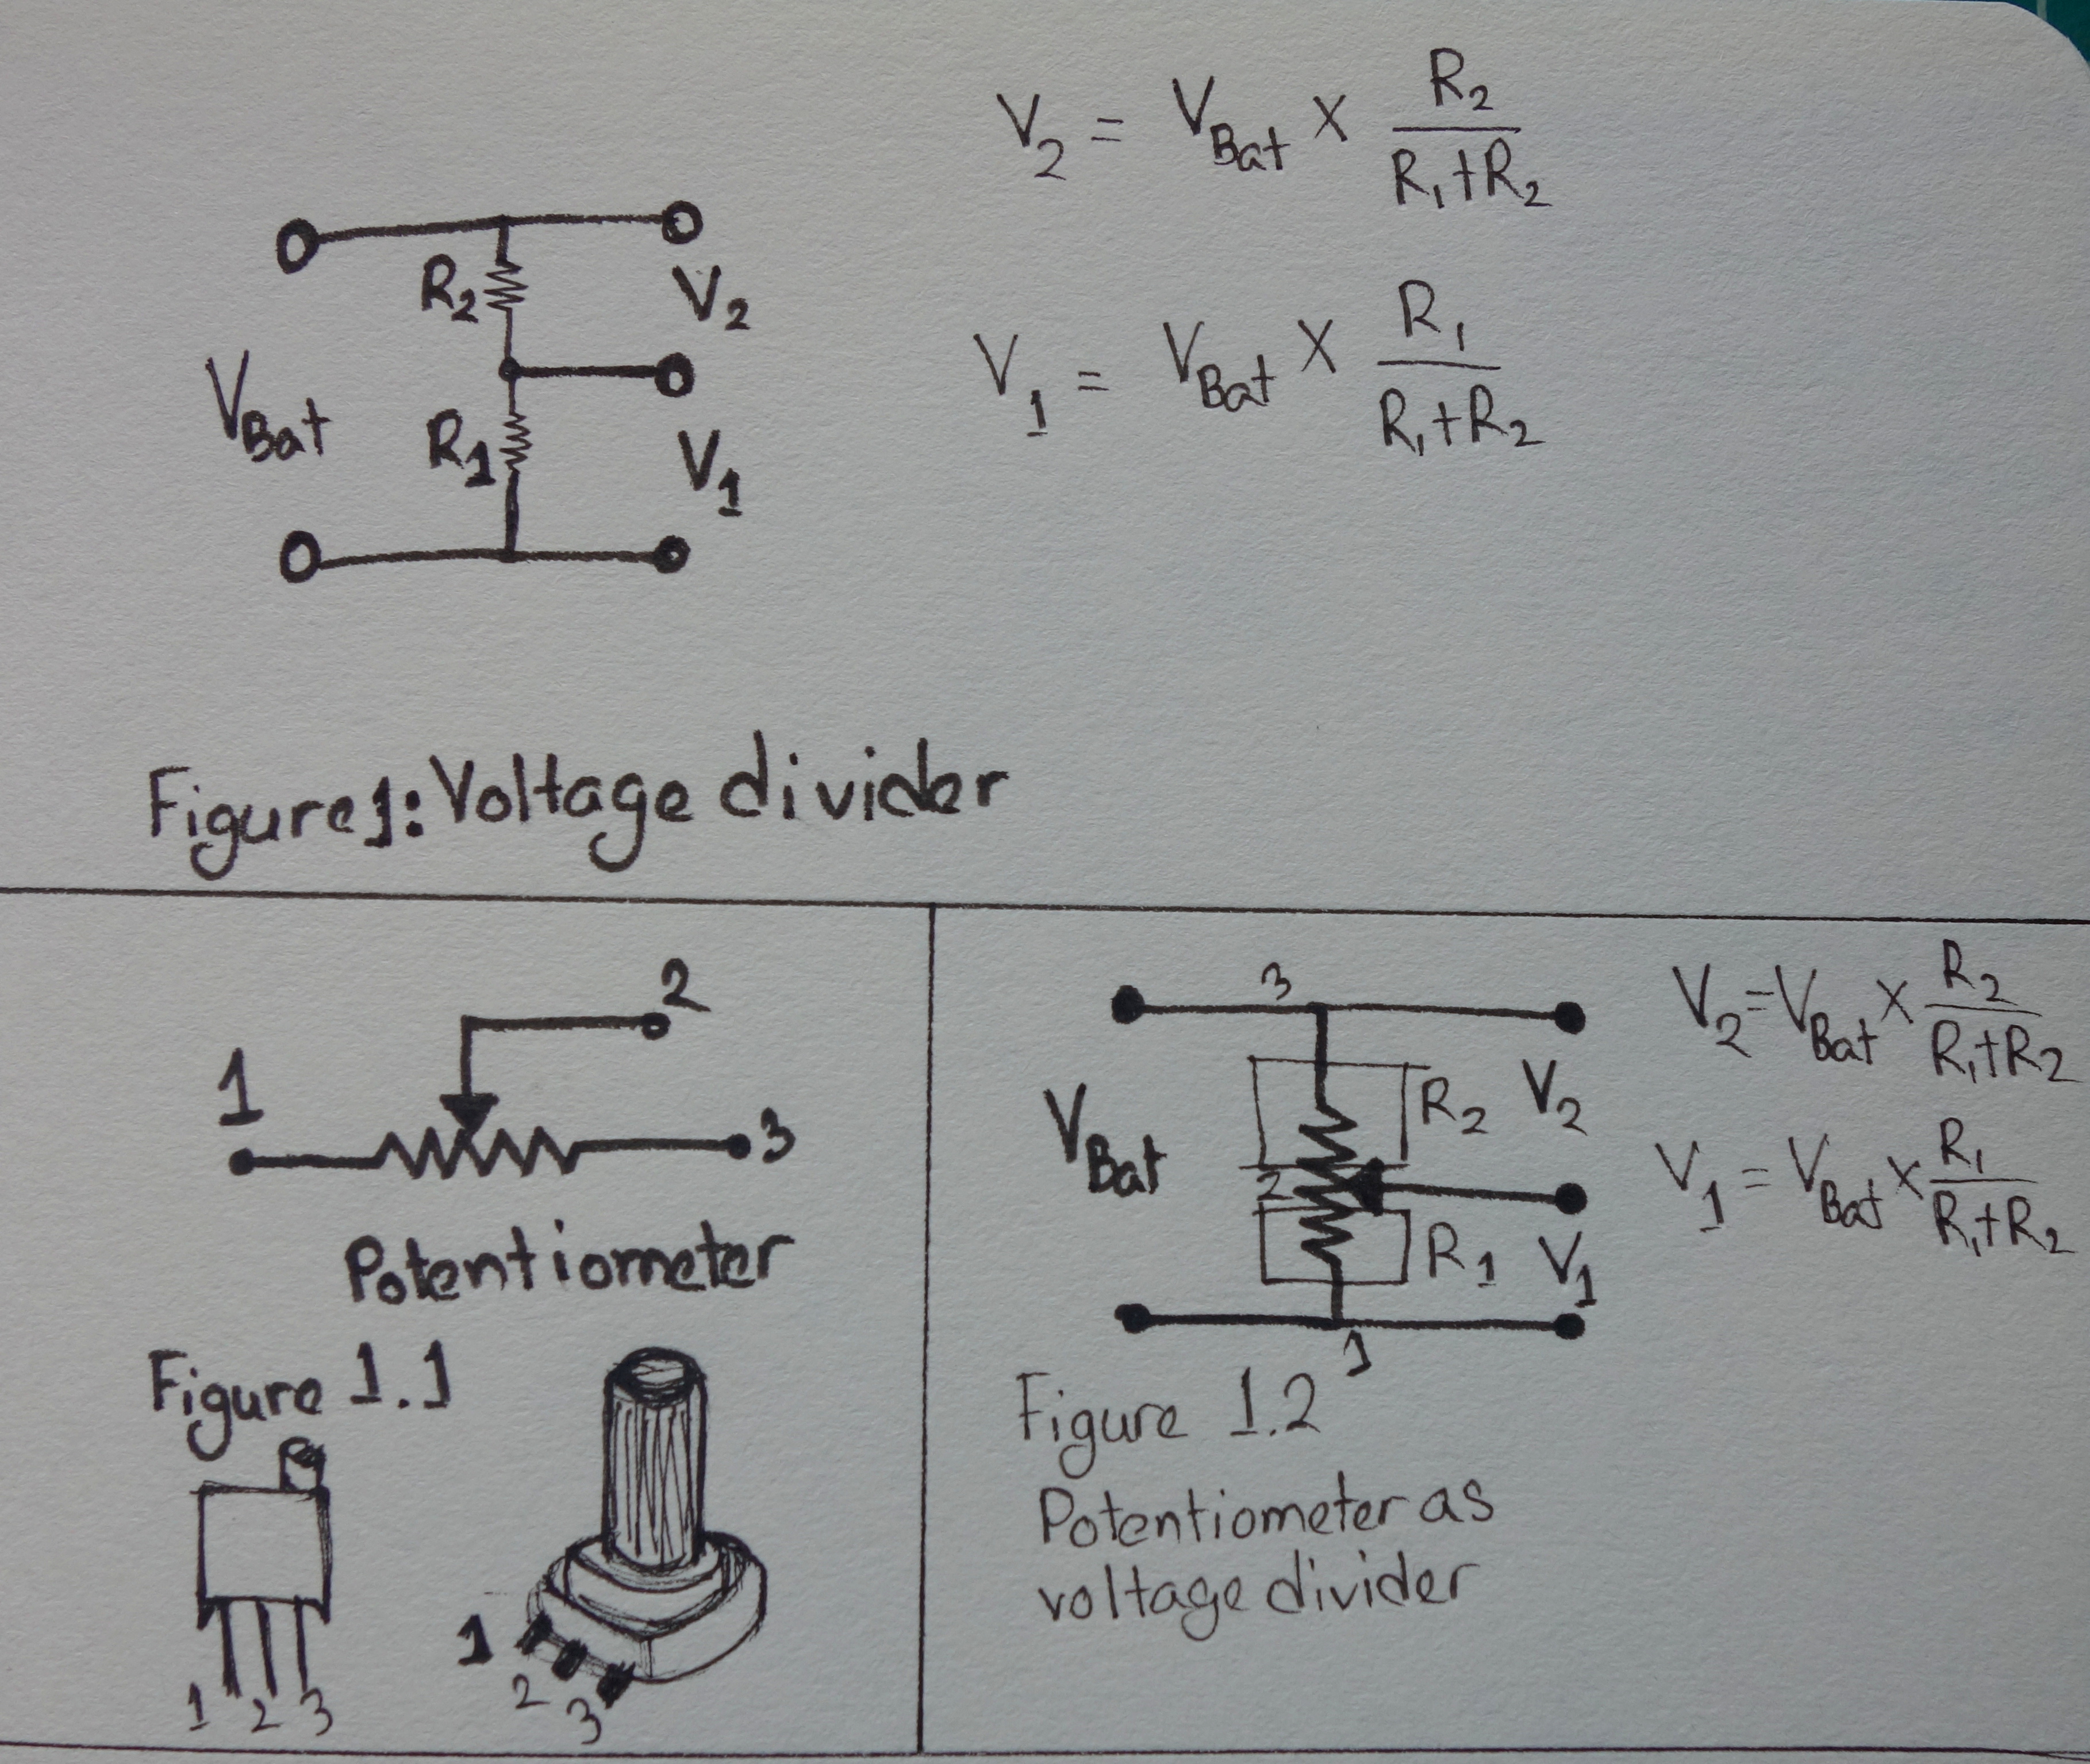 V₂ = V_Bat × R₂/(R₁+R₂)
R₂
V₂
V_Bat
R₁
V₁
V₁ = V_Bat × R₁/(R₁+R₂)
Figure 1: Voltage divider
1
2
3
Potentiometer
Figure 1.1
1 2 3
1
2
3
3
V_Bat
R₂
V₂
2
R₁
V₁
1
V₂ = V_Bat × R₂/(R₁+R₂)
V₁ = V_Bat × R₁/(R₁+R₂)
Figure 1.2
Potentiometer as
voltage divider